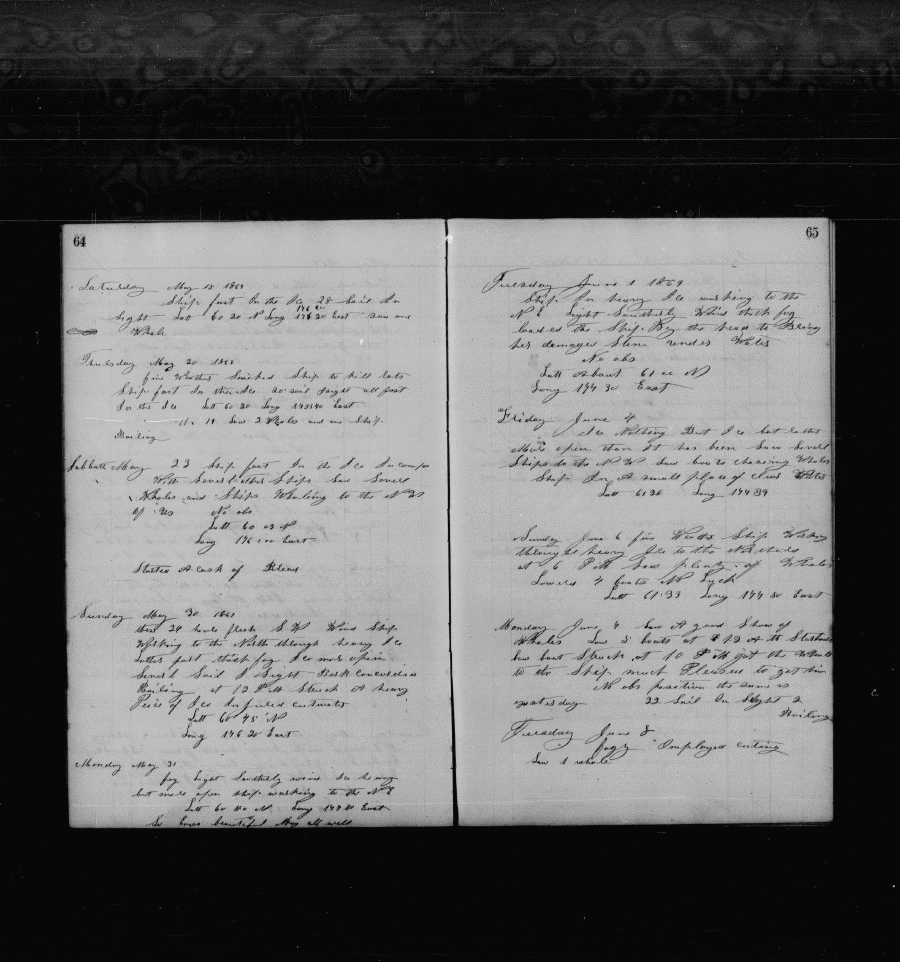 64
Saturday May 15 1869
Ship fast In the Ice 28 Sail In
Sight Latt 60 20 N Long 176 20 East saw one
Whale
Thursday May 20 1869
fine Weather Smoked Ship to kill rats
Ship fast In the Ice 20 sail Sight all fast
In the Ice Latt 60 20 Long East
Saw 2 Whales and one Ship
Boiling
Sabbath May 23 Ship fast In the Ice In company
With Severl other Ships Saw Severl
Whales and Ships Whaling to the N W
of Us No obs
Latt 60 03 N
Long 176 00 East
Started A cask of Bread
Sunday May 30 1869
these 24 hours fresh S W Wind Ship
Working to the North through heavy Ice
Latter part thick fog Ice more open
Severl Sail I Sight Bark
Boiling at 12 P M Struck A heavy
Peice of Ice Injured cutwater
Latt 60 45 N
Long 176 20 East
Monday May 31
fog Light Southerly wind Ice heavy
but more open ship working to the N E
Latt 60 N Long East
So beautiful May all well
65
Tuesday June 1 1869
Ship In heavy Ice working to the
N E Light Southerly Wind thick fog
the Ship By the head to Bring
her damaged Stem under Water
No obs
Latt About 61 00 N
Long 177 30 East
Friday June 4
Ice Nothing But Ice but rather
More open than It has been Saw Severl
Ships to the N W Saw boats chaseing Whales
Ship In A small place of Clear Water
Latt 61 26 Long 177 39
Sunday June 6 fine Weather Ship Working
through heavy Ice to the Northard
at 6 P M Saw plenty of Whales
Lowered 4 boats No Luck
Latt 61 33 Long 177 50 East
Monday June 7 Saw A good Show of
Whales Low boats at A M Starboard
bow boat Struck at 10 P M got the Whale
to the Ship much Pleased to get him
No obs position the same as
yesterday 22 Sail In Sight 2
Boiling
Tuesday June 8
foggy Employed cutting
Saw 1 whale